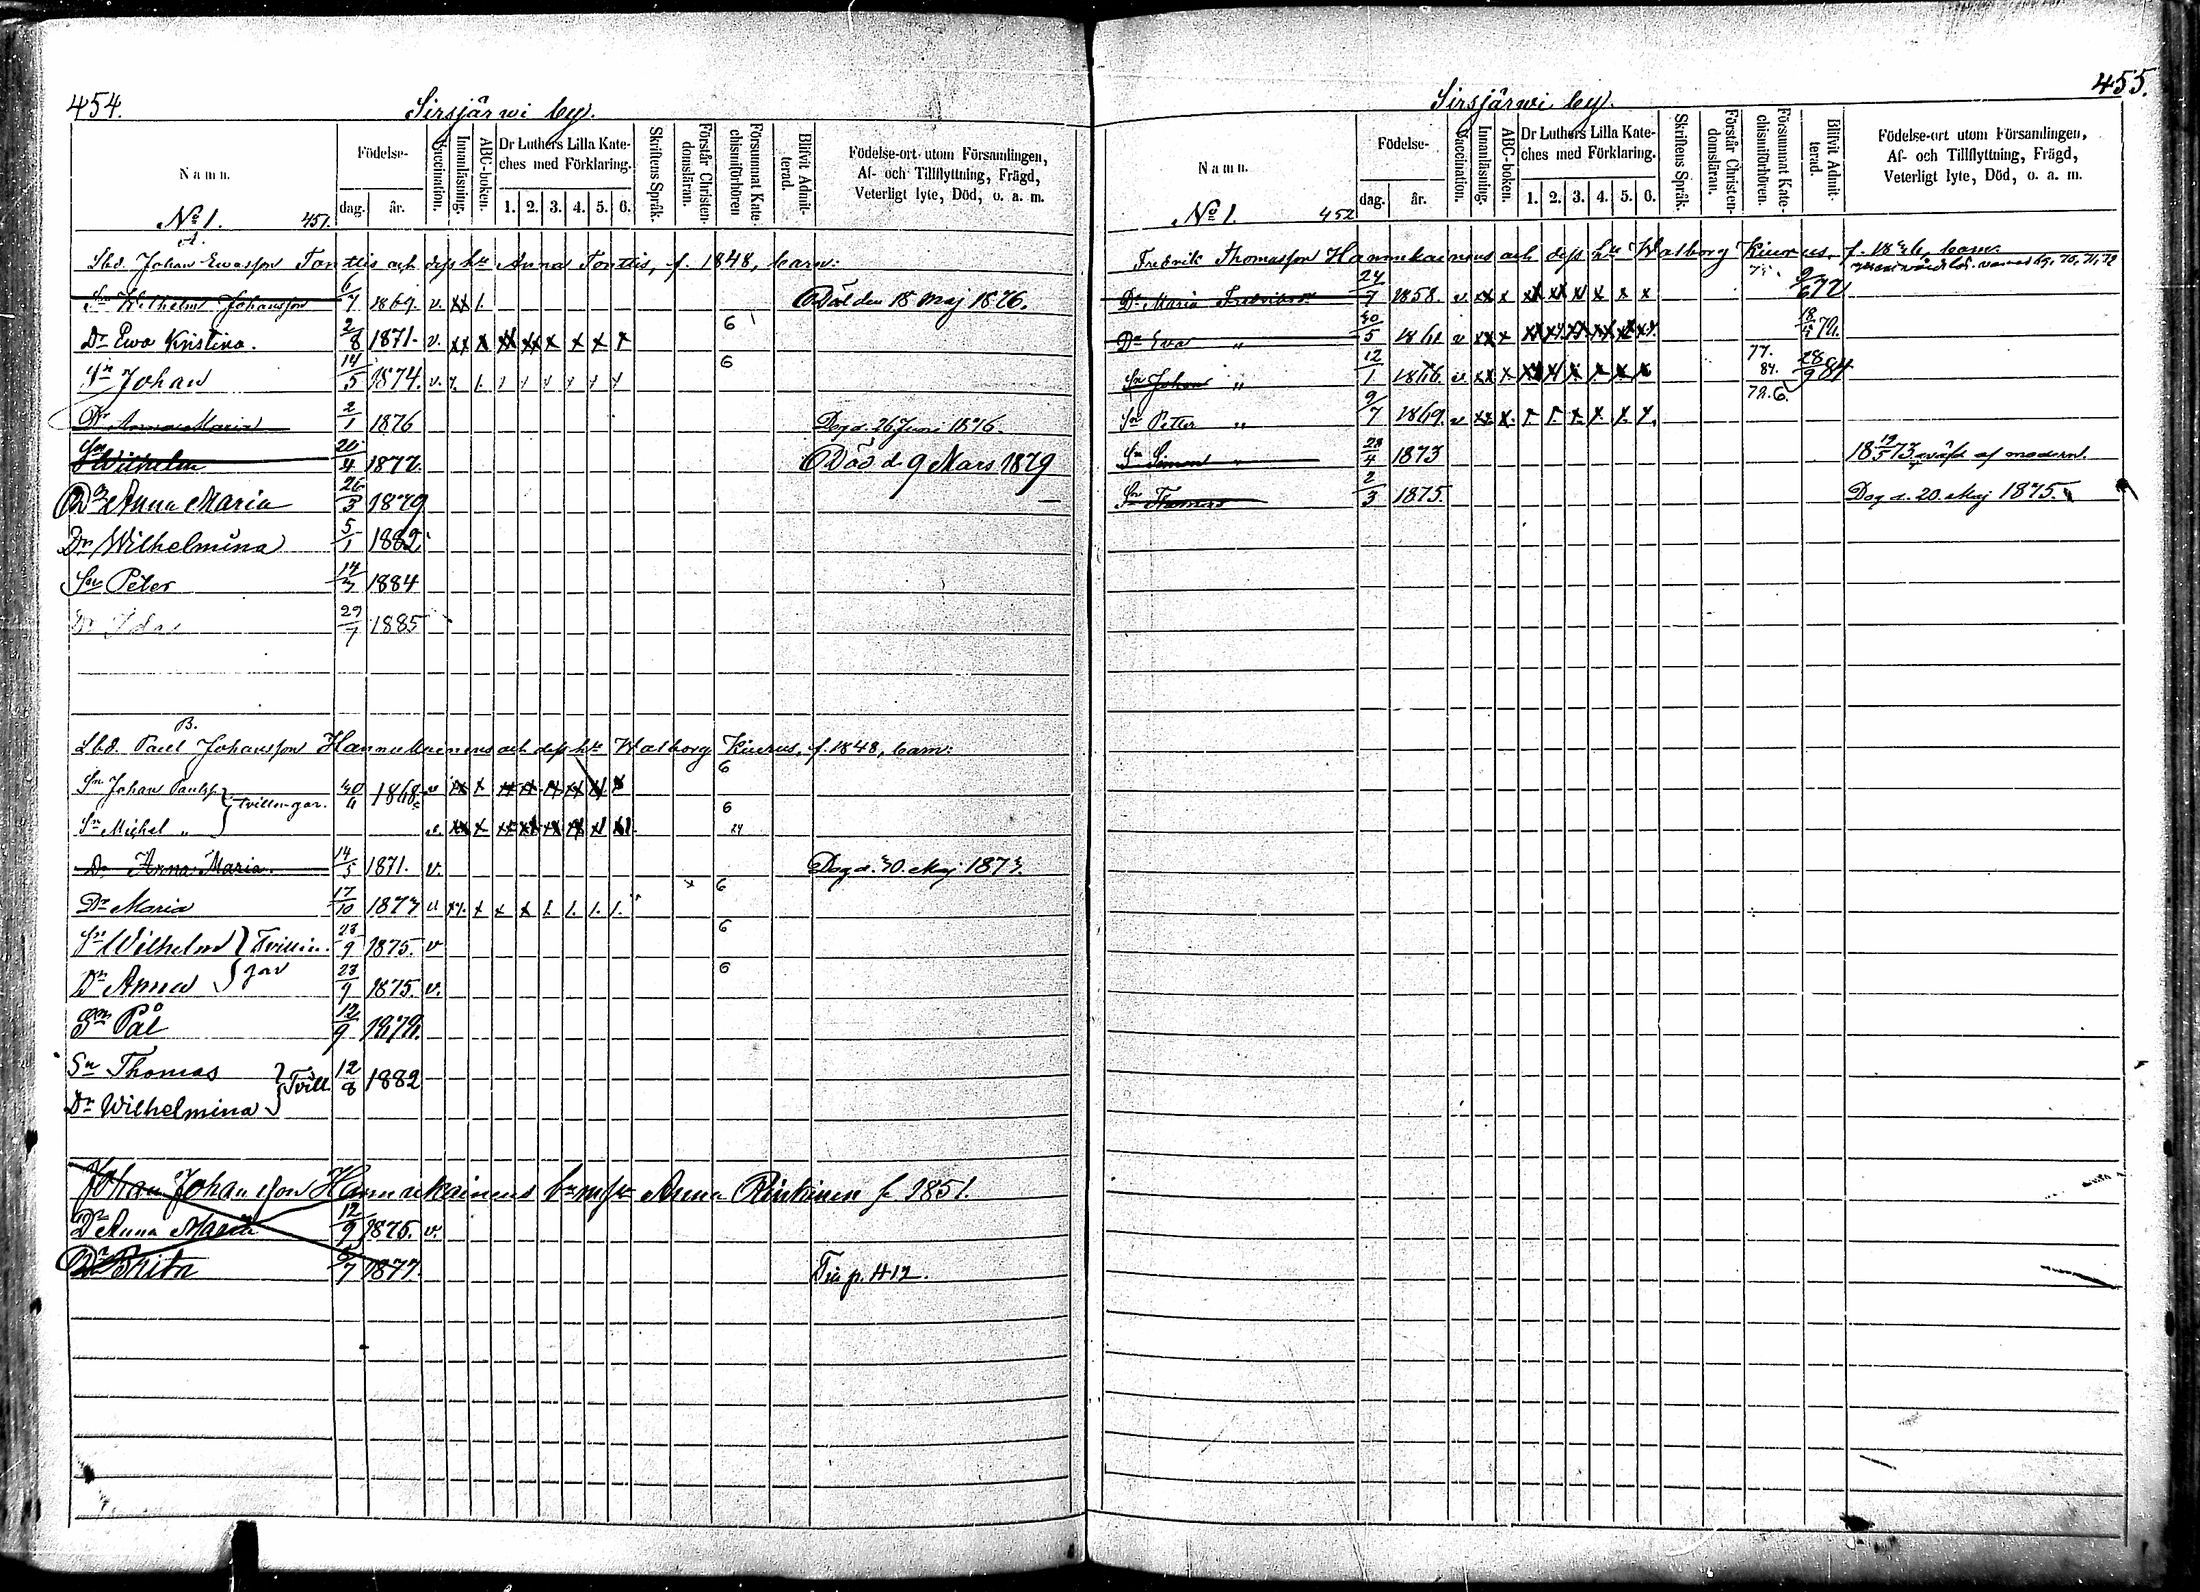 454.
Sirsjärwi by.
Namn.
Födelse-
dag.
år.
Vaccination.
Innanläsning.
ABC-boken.
Dr Luthers Lilla Kate-
ches med Förklaring.
1. 2. 3. 4. 5. 6.
Skriftens Språk.
Förstår Christen-
domsläran.
Försummat Kate-
chismiförhören
Blifvit Admit-
terad.
Födelse-ort utom Församlingen,
Af- och Tillflyttning, Frägd,
Veterligt lyte, Död, o. a. m.
No 1. 451.
A.
Lbd. Johan Ewasson Tonttis och dess hu Anna Tonttis, f. 1848, barn:
Sn Wilhelm Johansson 6/7 1869. v. Död den 18 Maj 1876.
Dr Ewa Kristina. 2/8 1871. v. 6
Sn Johan 14/5 1874. v. 6
Dr Anna Maria 2/1 1876 Dog d. 26 Juni 1876.
Sn Wilhelm 20/4 1877. Död d. 9 Mars 1879
Dr Anna Maria 26/3 1879
Dr Wilhelmina 5/1 1882
Sn Peter 14/3 1884
Dr Ida 29/7 1885
B.
Lbd. Paul Johansson Hannukainens och dess hu Walborg Kiurus, f. 1848, barn:
Sn Johan Paulss. Tvillingar. 30/11 1868 v 6
Sn Michel „ v. 6
Dr Anna Maria. 14/5 1871. v. Dog d. 30 Maj 1873.
Dr Maria 17/10 1873 v 6
Sn Wilhelm Tvillin- 23/9 1875. v 6
Dr Anna gar 23/9 1875. v. 6
Sn Pål 12/9 1879.
Sn Thomas Tvill. 12/8 1882
Dr Wilhelmina
Johan Johansson Hannukainens bn m hu Anna Rinkinen f. 1851.
Dr Anna Maria 12/9 1875. v.
Dr Brita 5/7 1877. Tr. p. 412.
455.
Sirsjärwi by.
Namn.
Födelse-
dag.
år.
Vaccination.
Innanläsning.
ABC-boken.
Dr Luthers Lilla Kate-
ches med Förklaring.
1. 2. 3. 4. 5. 6.
Skriftens Språk.
Förstår Christen-
domsläran.
Försummat Kate-
chismiförhören.
Blifvit Admit-
terad.
Födelse-ort utom Församlingen,
Af- och Tillflyttning, Frägd,
Veterligt lyte, Död, o. a. m.
No 1. 452
Fredrik Thomasson Hannukainens och dess hu Walborg Kiurus, f. barn:
Dr Maria Fredriksdr 24/7 1858. v
Dr Eva „ 30/5 1861 v
Sn Johan „ 12/1 1866 v 77. 84. 28/9 84
Sn Petter „ 9/7 1869. v 72. 6.
Sn Simon „ 28/4 1873 18 19/5 73 qväfd af modern.
Sn Thomas 2/3 1875. Dog d. 20 Maj 1875.